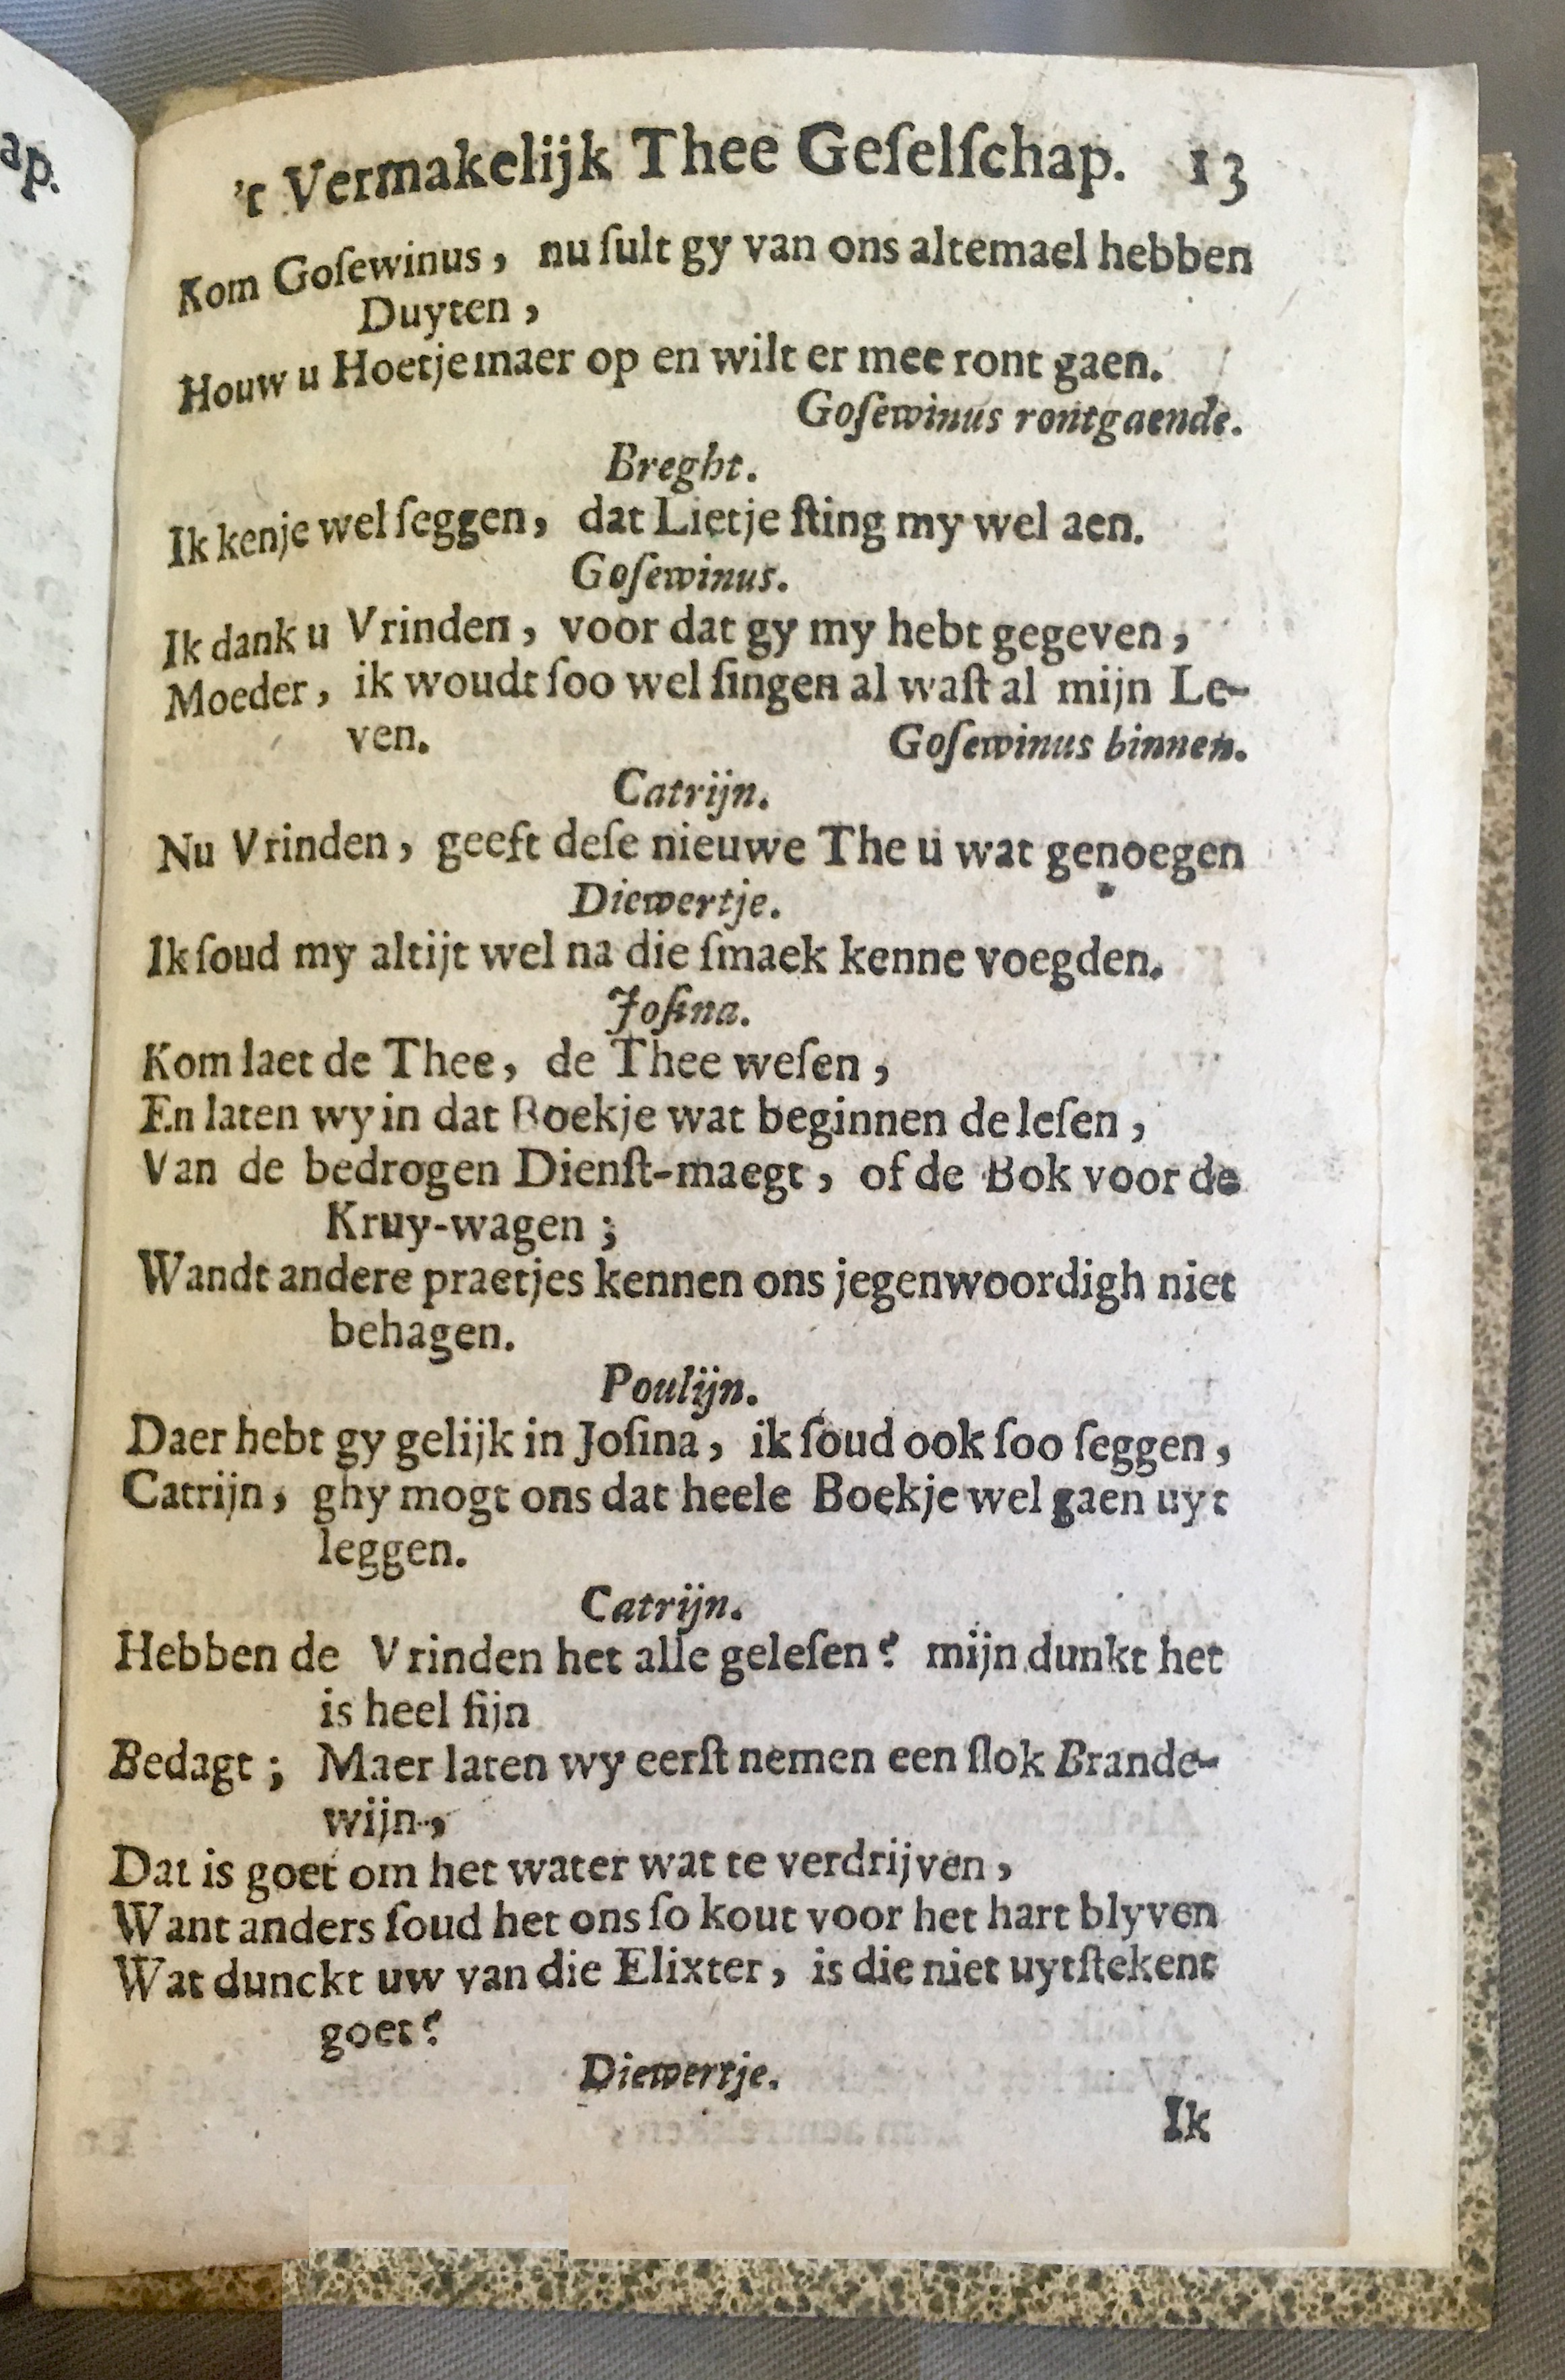 ap.
't Vermakelijk Thee Geſelſchap. 13
Kom Goſewinus, nu ſult gy van ons altemael hebben
Duyten,
Houw u Hoetje maer op en wilt er mee ront gaen.
Goſewinus rontgaende.
Breght.
Ik kenje wel ſeggen, dat Lietje ſting my wel aen.
Goſewinus.
Ik dank u Vrinden, voor dat gy my hebt gegeven,
Moeder, ik woudt ſoo wel ſingen al waſt al mijn Le-
ven. Goſewinus binnen.
Catrijn.
Nu Vrinden, geeft deſe nieuwe The u wat genoegen
Diewertje.
Ik ſoud my altijt wel na die ſmaek kenne voegden.
Joſina.
Kom laet de Thee, de Thee weſen,
En laten wy in dat Boekje wat beginnen de leſen,
Van de bedrogen Dienſt-maegt, of de Bok voor de
Kruy-wagen;
Wandt andere praetjes kennen ons jegenwoordigh niet
behagen.
Poulijn.
Daer hebt gy gelijk in Joſina, ik ſoud ook ſoo ſeggen,
Catrijn, ghy mogt ons dat heele Boekje wel gaen uyt
leggen.
Catrijn.
Hebben de Vrinden het alle geleſen? mijn dunkt het
is heel fijn
Bedagt; Maer laten wy eerſt nemen een ſlok Brande-
wijn,
Dat is goet om het water wat te verdrijven,
Want anders ſoud het ons ſo kout voor het hart blyven
Wat dunckt uw van die Elixter, is die niet uytſtekent
goet?
Diewertje.
Ik